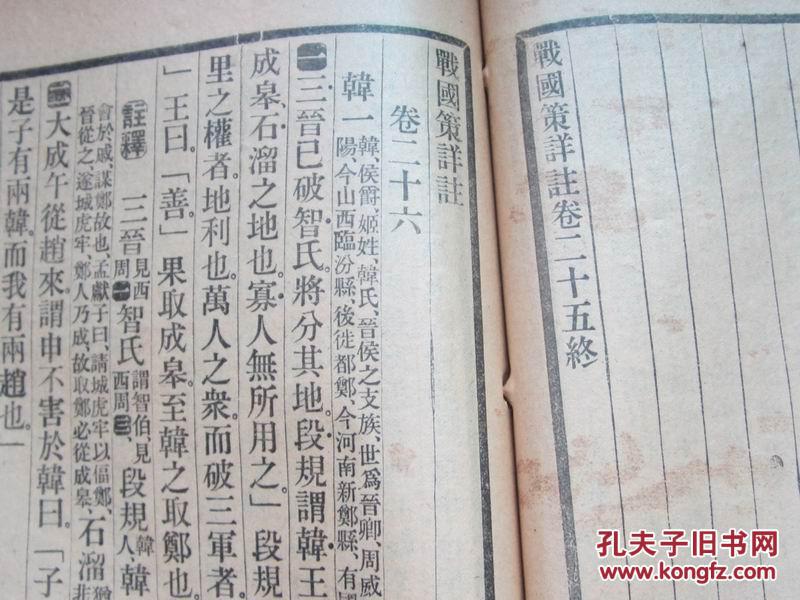 戰國策詳註卷二十五終
戰國策詳註
卷二十六
韓一
韓、侯爵、姬姓、韓氏、晉侯之支族、世爲晉卿、周威
陽、今山西臨汾縣、後徙都鄭、今河南新鄭縣、有
一 三晉已破智氏。將分其地。段規謂韓王
成皋、石溜之地也。寡人無所用之」段規
里之權者。地利也。萬人之衆。而破三軍者。
」王曰。「善。」果取成皋。至韓之取鄭也。
註釋 三晉 見西周一 智氏 謂智伯、見西周三、 段規 韓人、 韓
會於戚、謀鄭故也、孟獻子曰、請城虎牢以偪鄭、
晉從之、遂城虎牢、鄭人乃成、故取鄭必從成皋、 石溜
二 大成午從趙來。謂申不害於韓曰。「子
是子有兩韓。而我有兩趙也。」
孔夫子旧书网
www.kongfz.com